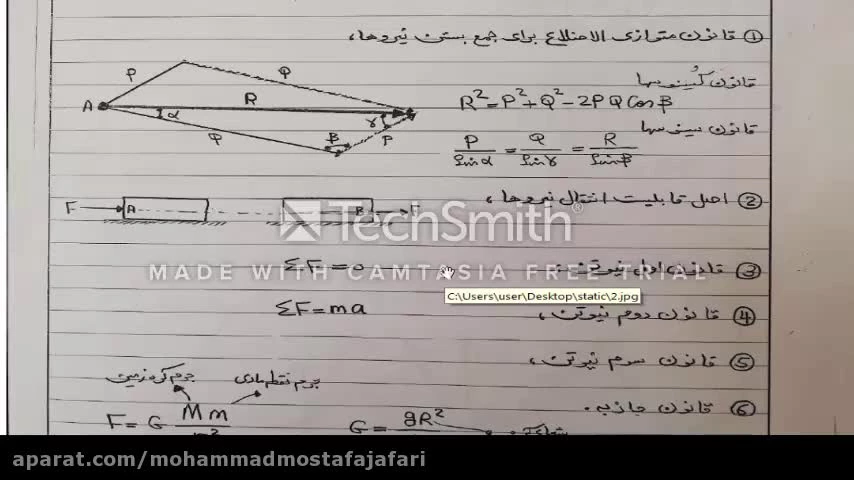 ① قانون متوازی الاضلاع برای جمع بستن نیروها،
قانون کسینوسها
R² = P² + Q² - 2PQ Cos β
قانون سینوسها
P/Sin α = Q/Sin γ = R/Sin β
P Q
A R
α γ
Q B P
② اصل قابلیت انتقال نیروها،
F A B F
TechSmith
MADE WITH CAMTASIA FREE TRIAL
③ قانون اول نیوتن، ΣF = 0
C:\Users\user\Desktop\static\2.jpg
④ قانون دوم نیوتن، ΣF = ma
⑤ قانون سوم نیوتن،
⑥ قانون جاذبه.
جرم کره زمین جرم نقطه مادی
F = G Mm
G = gR²
aparat.com/mohammadmostafajafari